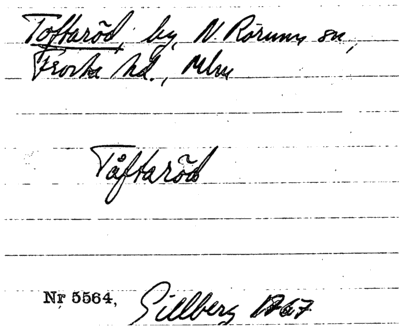 Toftaröd, by, N. Rörums sn,
Frosta hd., Mlm
Tåftaröd
Nr 5564, Gillberg 1767